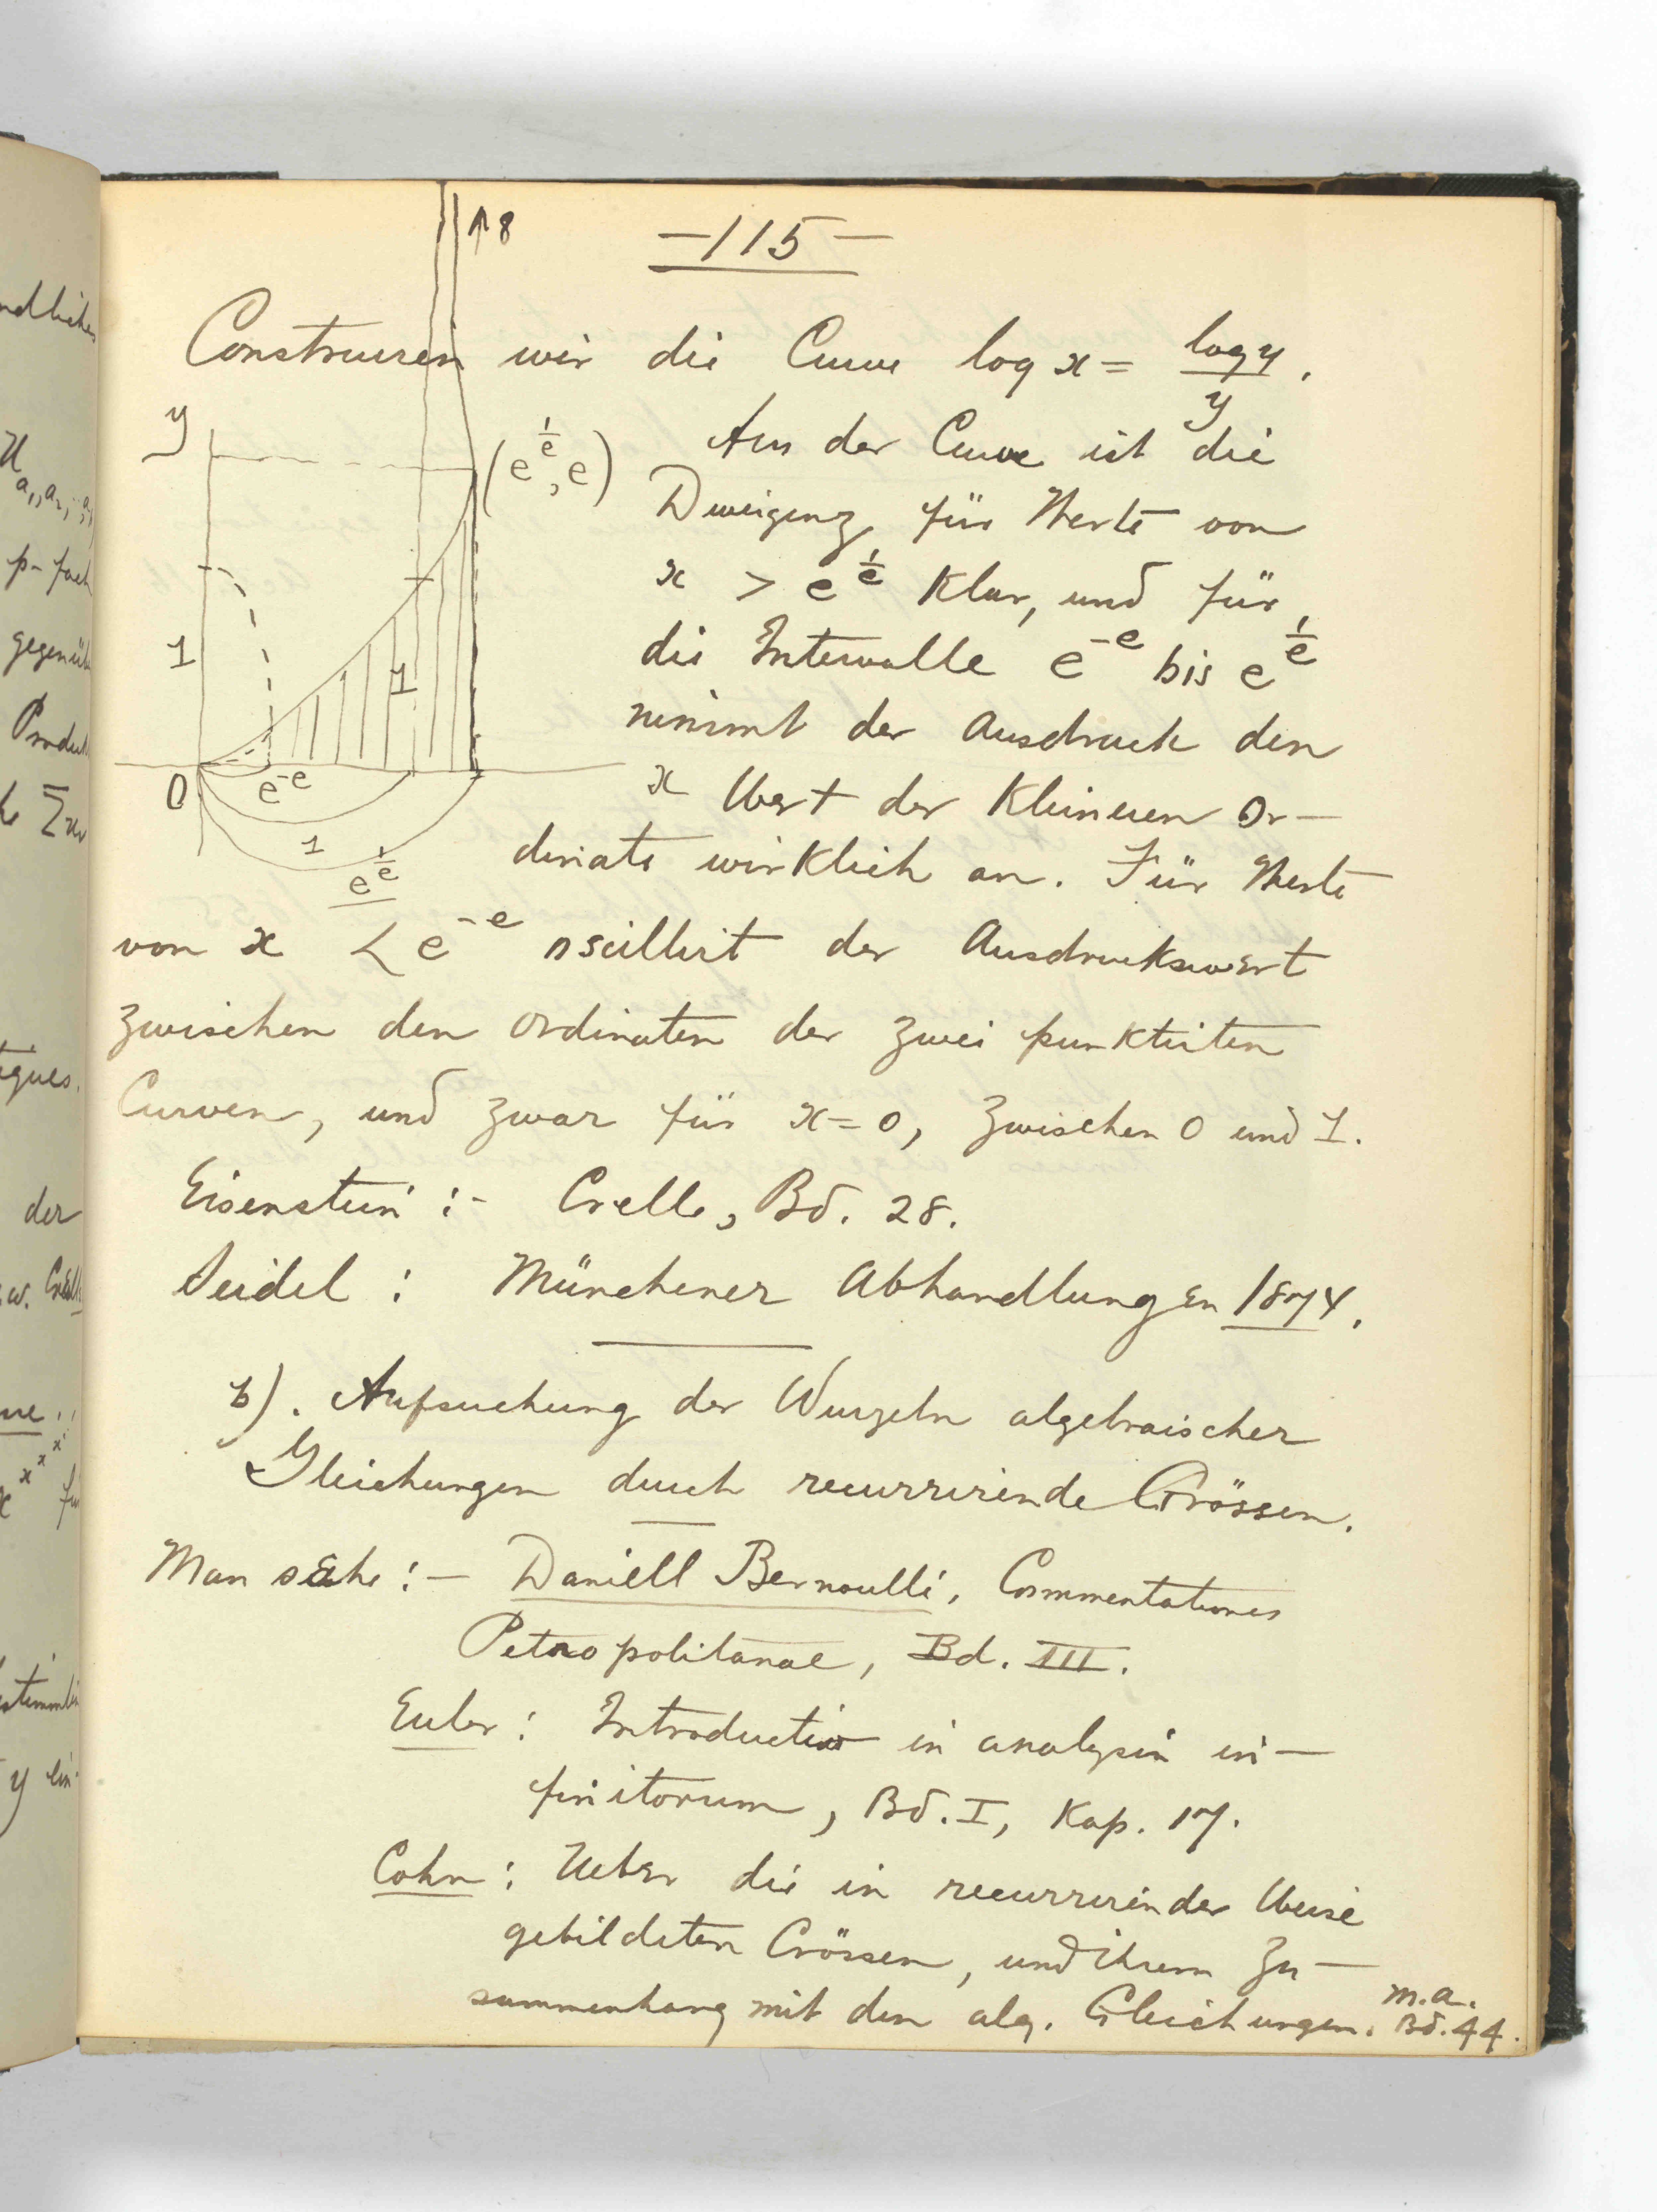 —115—
↑8
Construiren wir die Curve log x = log y / y.
Aus der Curve ist die
Divergenz für Werte von
x > e^{1/e} klar, und für
die Intervalle e^{-e} bis e^{1/e}
nimmt der Ausdruck den
Wert der kleineren Or-
dinate wirklich an. Für Werte
von x < e^{-e} oscillirt der Ausdruckswert
zwischen den Ordinaten der zwei punktirten
Curven, und zwar für x=0, zwischen 0 und 1.
y
(e^{1/e}, e)
1
1
0
e^{-e}
x
1
e^{1/e}
Eisenstein :- Crelle, Bd. 28.
Seidel : Münchener Abhandlungen 1874.
b). Aufsuchung der Wurzeln algebraischer
Gleichungen durch recurrirende Grössen.
Man sehe :— Daniell Bernoulli, Commentationes
Petropolitanae, Bd. III.
Euler : Introductio in analysin in-
finitorum, Bd. I, Kap. 17.
Cohn : Ueber die in recurrirender Weise
gebildeten Grössen, und ihrem Zu-
sammenhang mit den alg. Gleichungen. M.A. Bd. 44.
ndlichen
p-fach
Produkt
der
y ein-